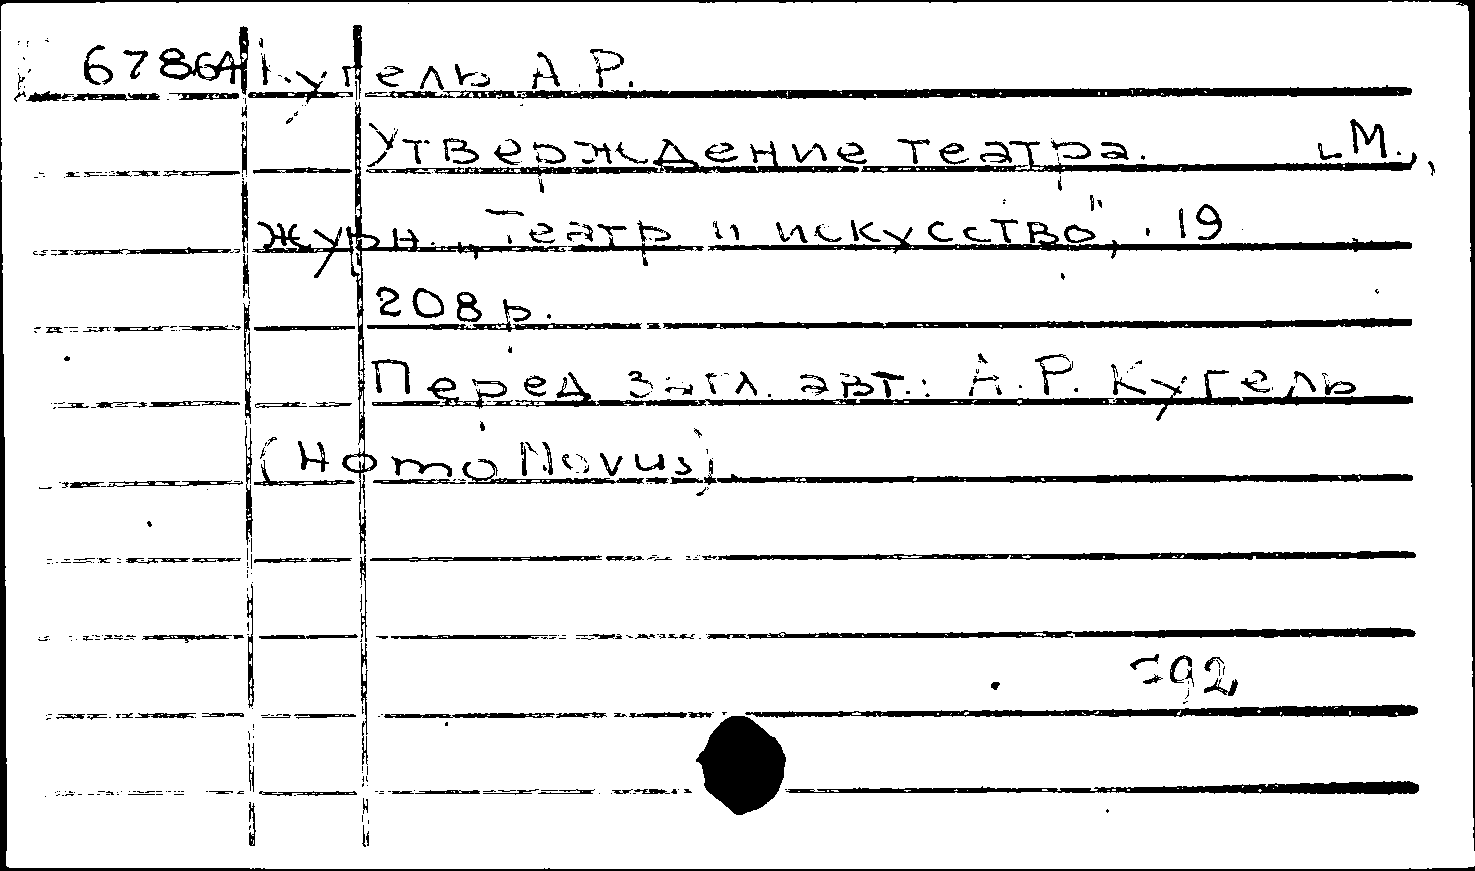 6786А Кугель А.Р.
Утверждение театра. М.,
журн. „Театр и искусство", 19
208 р.
Перед загл. авт.: А.Р. Кугель
(Homo Novus).
792